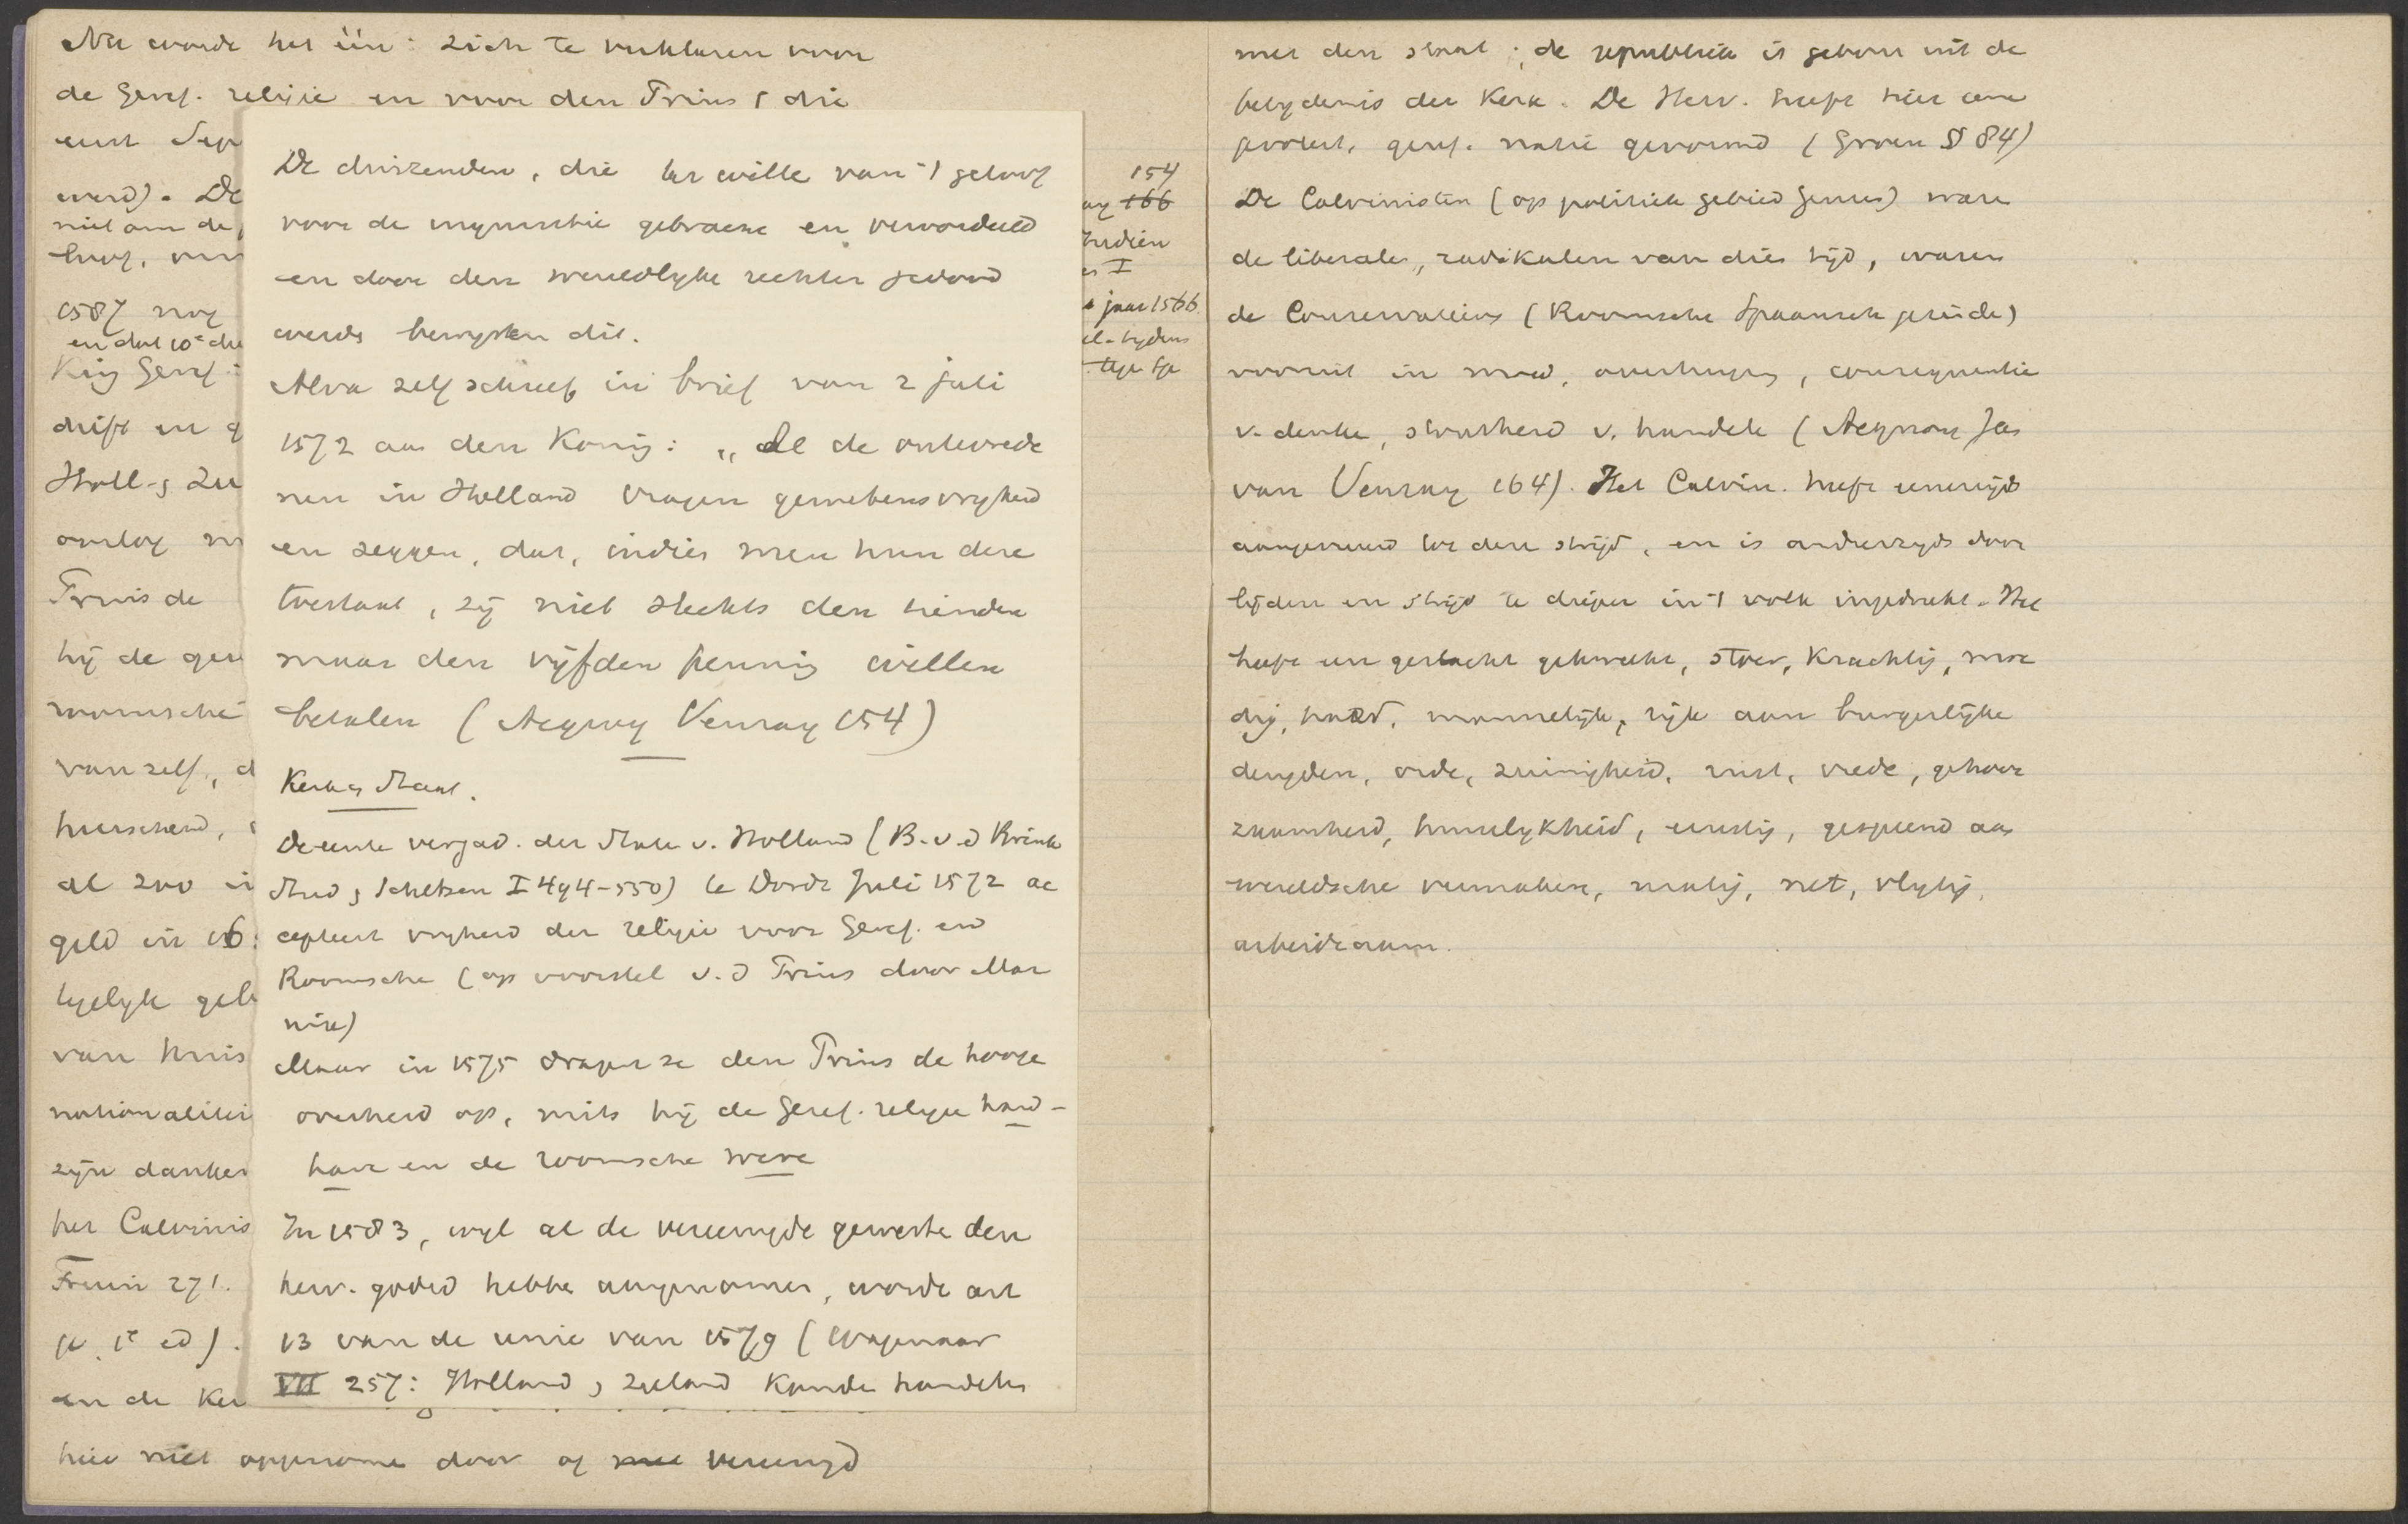 Nu worde het één: zich te verklaren voor
de Geref. religie en voor den Prins (die
eerst Sep
werd). De
niet om de
1587 nog
en dat 10e
King Geref.
drift en g
Holl. & Zee
oorlog
Fruin de
hij de
roomsche
van zelf, d
heerschend,
al zoo i
geld in 16
tyelyk gel
van huis
nationalitei
zijn danken
het Calvinis
Fruin 271.
1e ed).
en de Ker
hier niet opgenome door of met vereenigd
154
166
Indien
I
jaar 1566
De duizenden, die ter wille van 't geloof
voor de inquisitie gebracht en veroordeeld
en door den wereldlyke rechter gedood
werds bewyzen dit.
Alva zelf schreef in brief van 2 juli
1572 aan den Konig: „Al de ontevrede
nen in Holland vragen gewetensvryheid
en zeggen, dat, indien men hun deze
toestaat, zij niet slechts den tienden
maar den vijfden penning willen
betalen (Acquoy Venray 154)
Kerk & Staat.
De eerste vergad. der State v. Holland (B. v. d Brink
Stud & Schetsen I 494-550) te Dordr Juli 1572 ac
cepteert vryheid der religie voor Geref. end
Roomsche (op voorstel v. d Prins door Mar
nix)
Maar in 1575 dragen ze den Prins de hooge
overheid op, mits hij de Geref. religie hand-
have en de roomsche were
In 1583, wyl al de vereenigde geweste den
herv. godsd hebbe aangenomen, worde art
13 van de unie van 1579 (Wagenaar
VII 257: Holland & Zeeland konde handelen
met den staat; de republiek is geboren uit de
belydenis der Kerk. De Herv. heeft hier eene
protest. geref. natie gevormd (Groen § 84)
De Calvinisten (op politiek gebied Geuzen) ware
de liberale, radikalen van dien tijd, waren
de Conservatieven (Roomsche Spaansch gezinde)
vooruit in moed, overtuiging, consequentie
v. denke, stoutheid v. handele (Acquoy Jan
van Venray 164). Het Calvin. heeft eenerzijds
aangevuurd tot den strijd, en is anderzyds door
lijden en strijd te dieper in 't volk ingedrukt. Het
heeft een geslacht gekweekt, stoer, krachtig, moe
dig, hard, mannelijk, rijk aan burgerlijke
deugden, orde, zuinigheid, rust, vrede, gehoor
zaamheid, huiselykheid, ernstig, gespeend aan
wereldsche vermaken, matig, net, vlytig,
arbeidzaam.